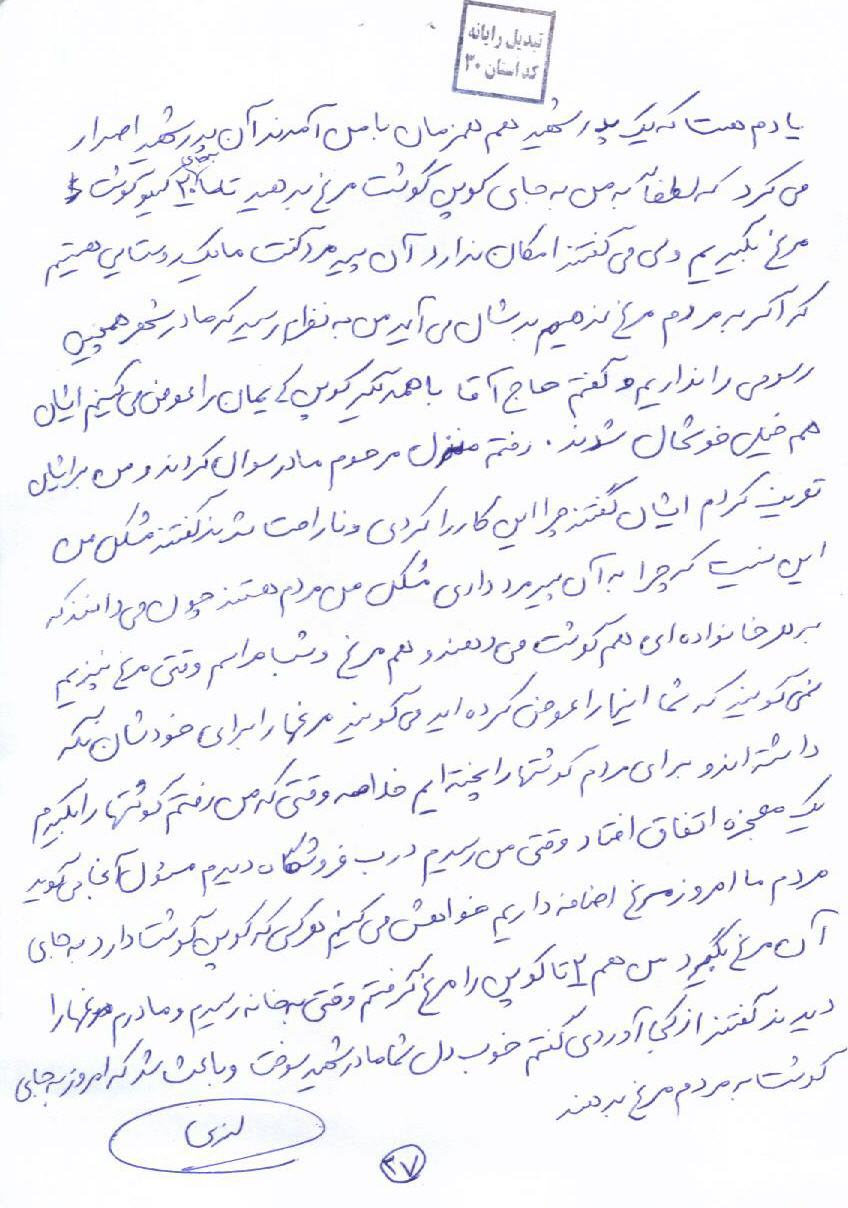 تبدیل رایانه
کد استان ۳۰
یادم هست که یک پدر شهید هم همزمان با من آمدند آن پدر شهید اصرار
می کرد که لطفاً به من به جای کوپن گوشت مرغ بدهید تا بجای ۲۰ کیلو گوشت
مرغ بگیریم ولی می گفتند امکان ندارد آن پیرمرد گفت ما یک روستایی هستیم
که اگر به مردم مرغ ندهیم بدشان می آید من به نظرم رسید که ما در شهر همچین
رسومی را نداریم و گفتم حاج آقا با همدیگر کوپن هایمان را عوض می کنیم ایشان
هم خیلی خوشحال شدند . رفتم منزل مرحوم مادر سوال کردند و من برایشان
تعریف کردم ایشان گفتند چرا این کار را کردی و ناراحت شدند گفتند مشکل من
این نیست که چرا به آن پیرمرد دادی مشکل من مردم هستند چون می دانند که
به هر خانواده ای هم گوشت می دهند و هم مرغ و شب مراسم وقتی مرغ نپزیم
نمی گویند که شما اینها را عوض کرده اید می گویند مرغها را برای خودشان نگه
داشته اند و برای مردم گوشتها را پخته ایم خلاصه وقتی که من رفتم گوشتها را بگیرم
یک معجزه اتفاق افتاد وقتی من رسیدم درب فروشگاه دیدم مسئول آنجا می گوید
مردم ما امروز مرغ اضافه داریم خواهش می کنیم هر کس که کوپن گوشت دارد به جای
آن مرغ بگیرد من هم ۲ تا کوپن را مرغ گرفتم وقتی به خانه رسیدم و مادرم مرغها را
دیدند گفتند از کجا آوردی گفتم خوب دل شما مادر شهید سوخت و باعث شد که امروز به جای
گوشت به مردم مرغ بدهند
۳۷